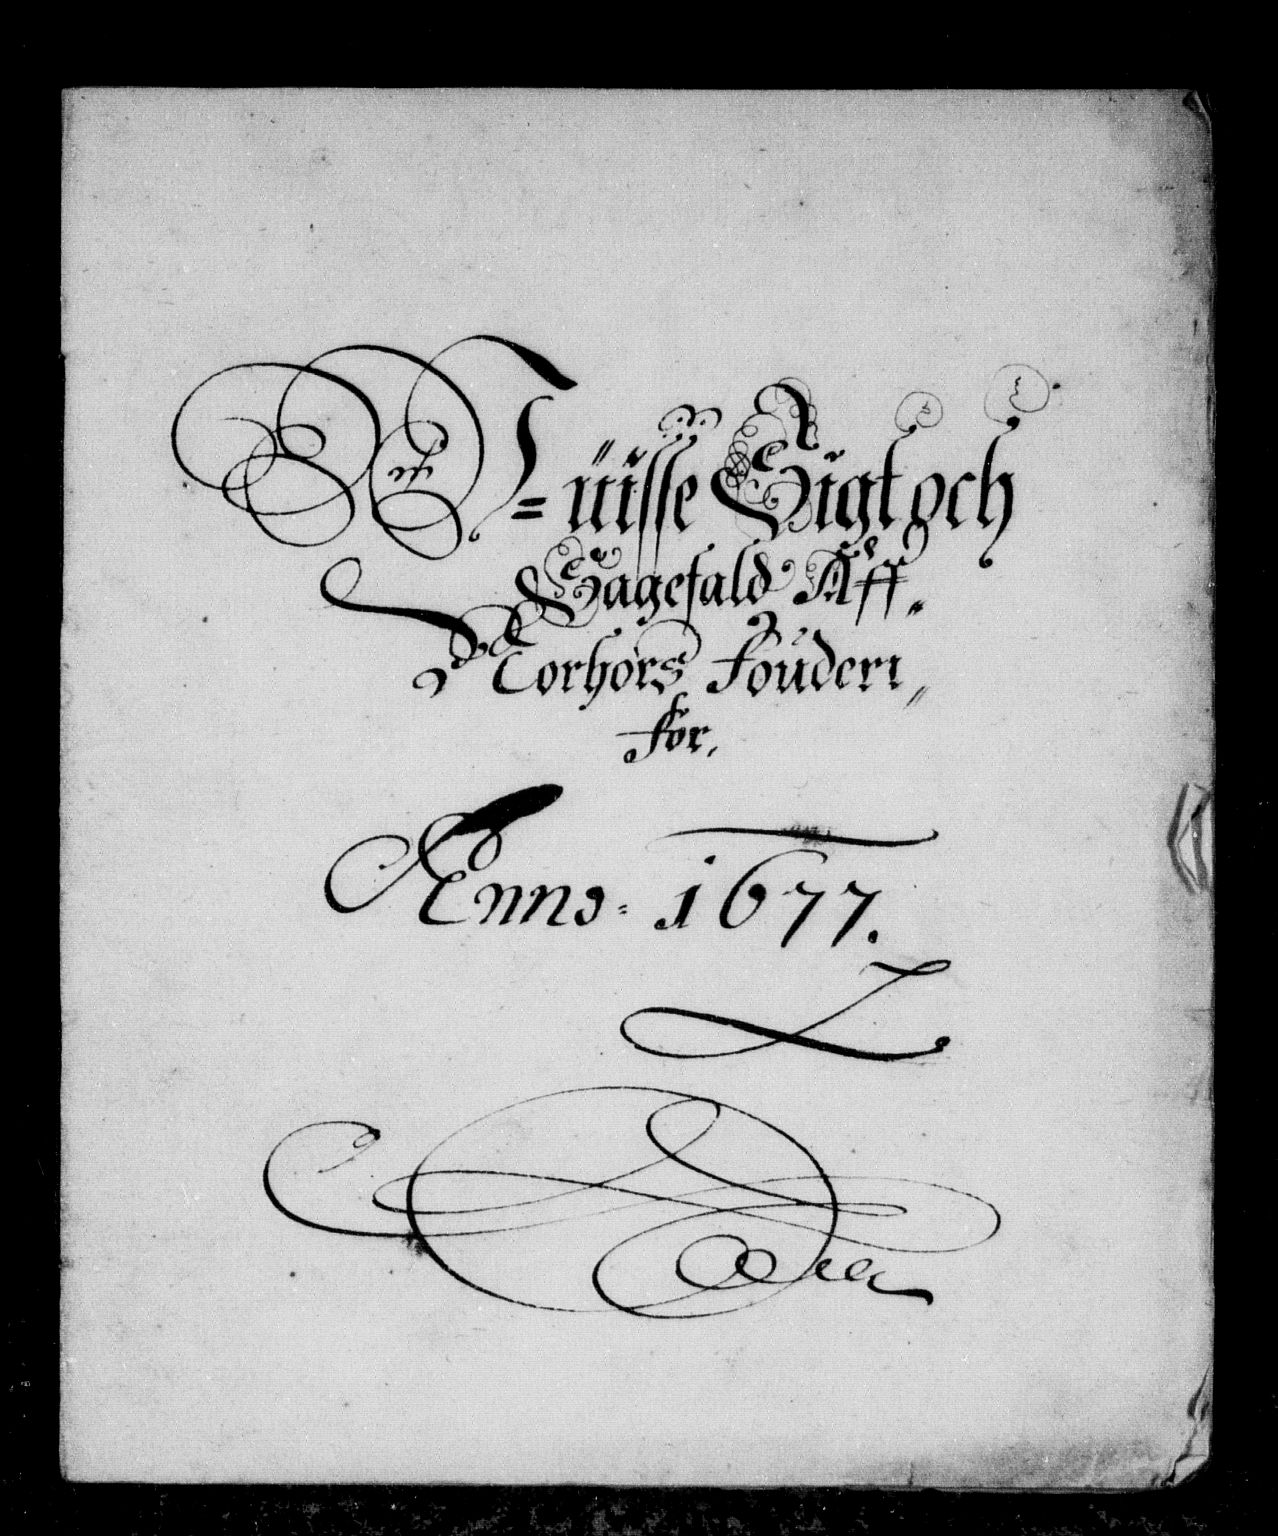 Wüisse Sigt och
Sagefald Aff,,
Norhors Fouderi,,
for,
Anno: 1677.